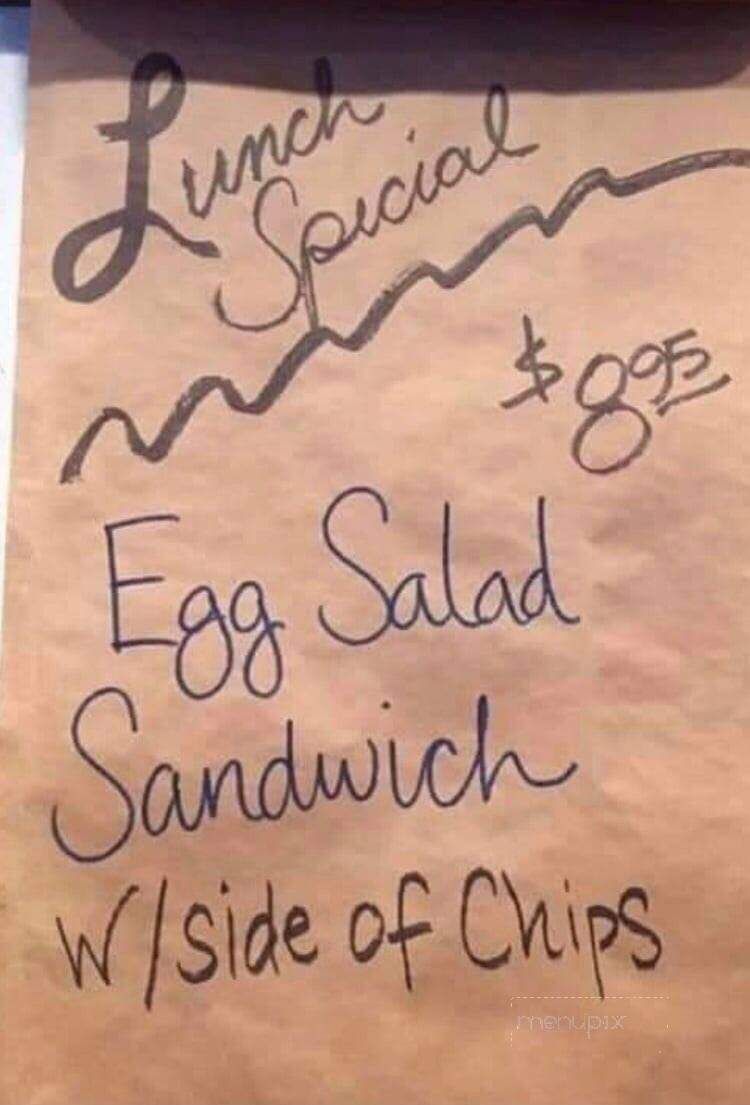 Lunch
Special
$8.95
Egg Salad
Sandwich
w/side of Chips
menupix